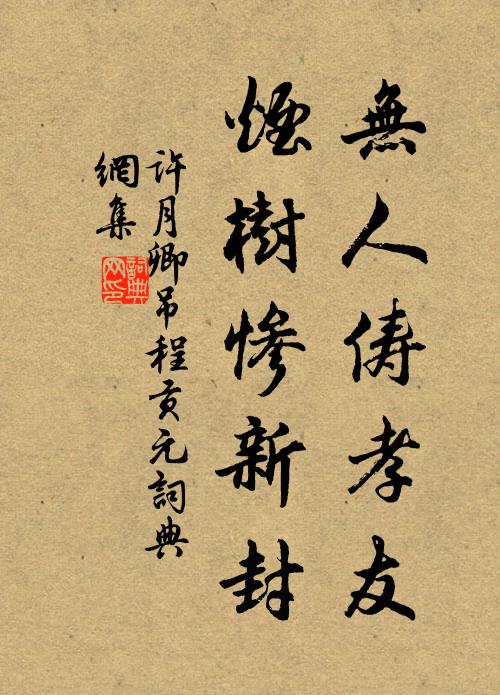 無人儔孝友
煙樹慘新封
許月卿吊程貢元詞典
網集
詞典網印